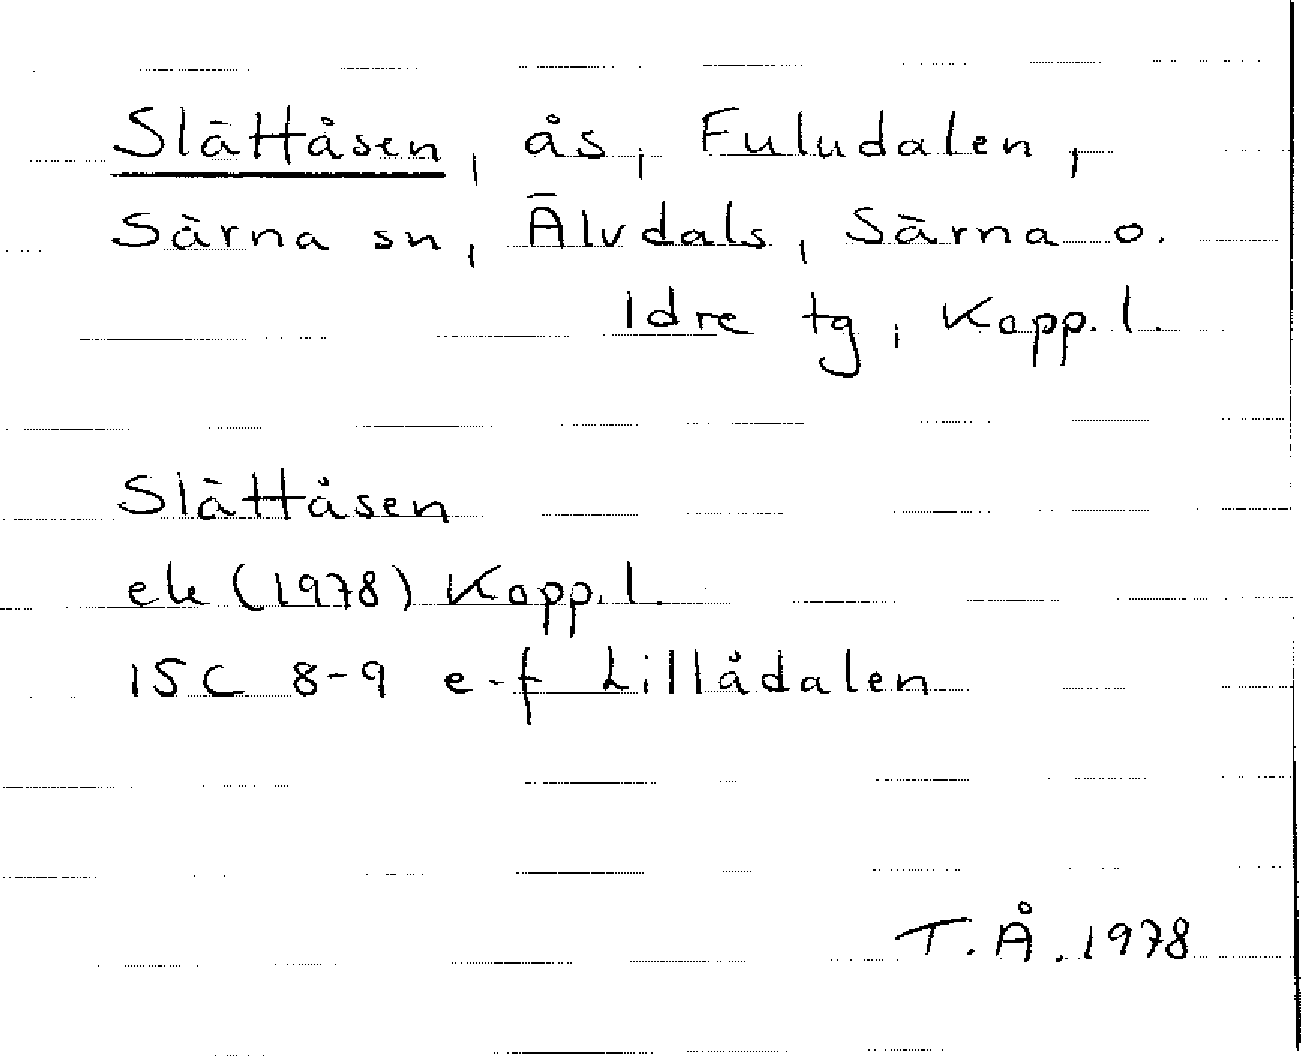 Slättåsen, ås, Fuludalen,
Särna sn, Älvdals, Särna o.
Idre tg, Kopp. l.
Slättåsen
ek (1978) Kopp. l.
15C 8-9 e-f Lillådalen
T.Å. 1978